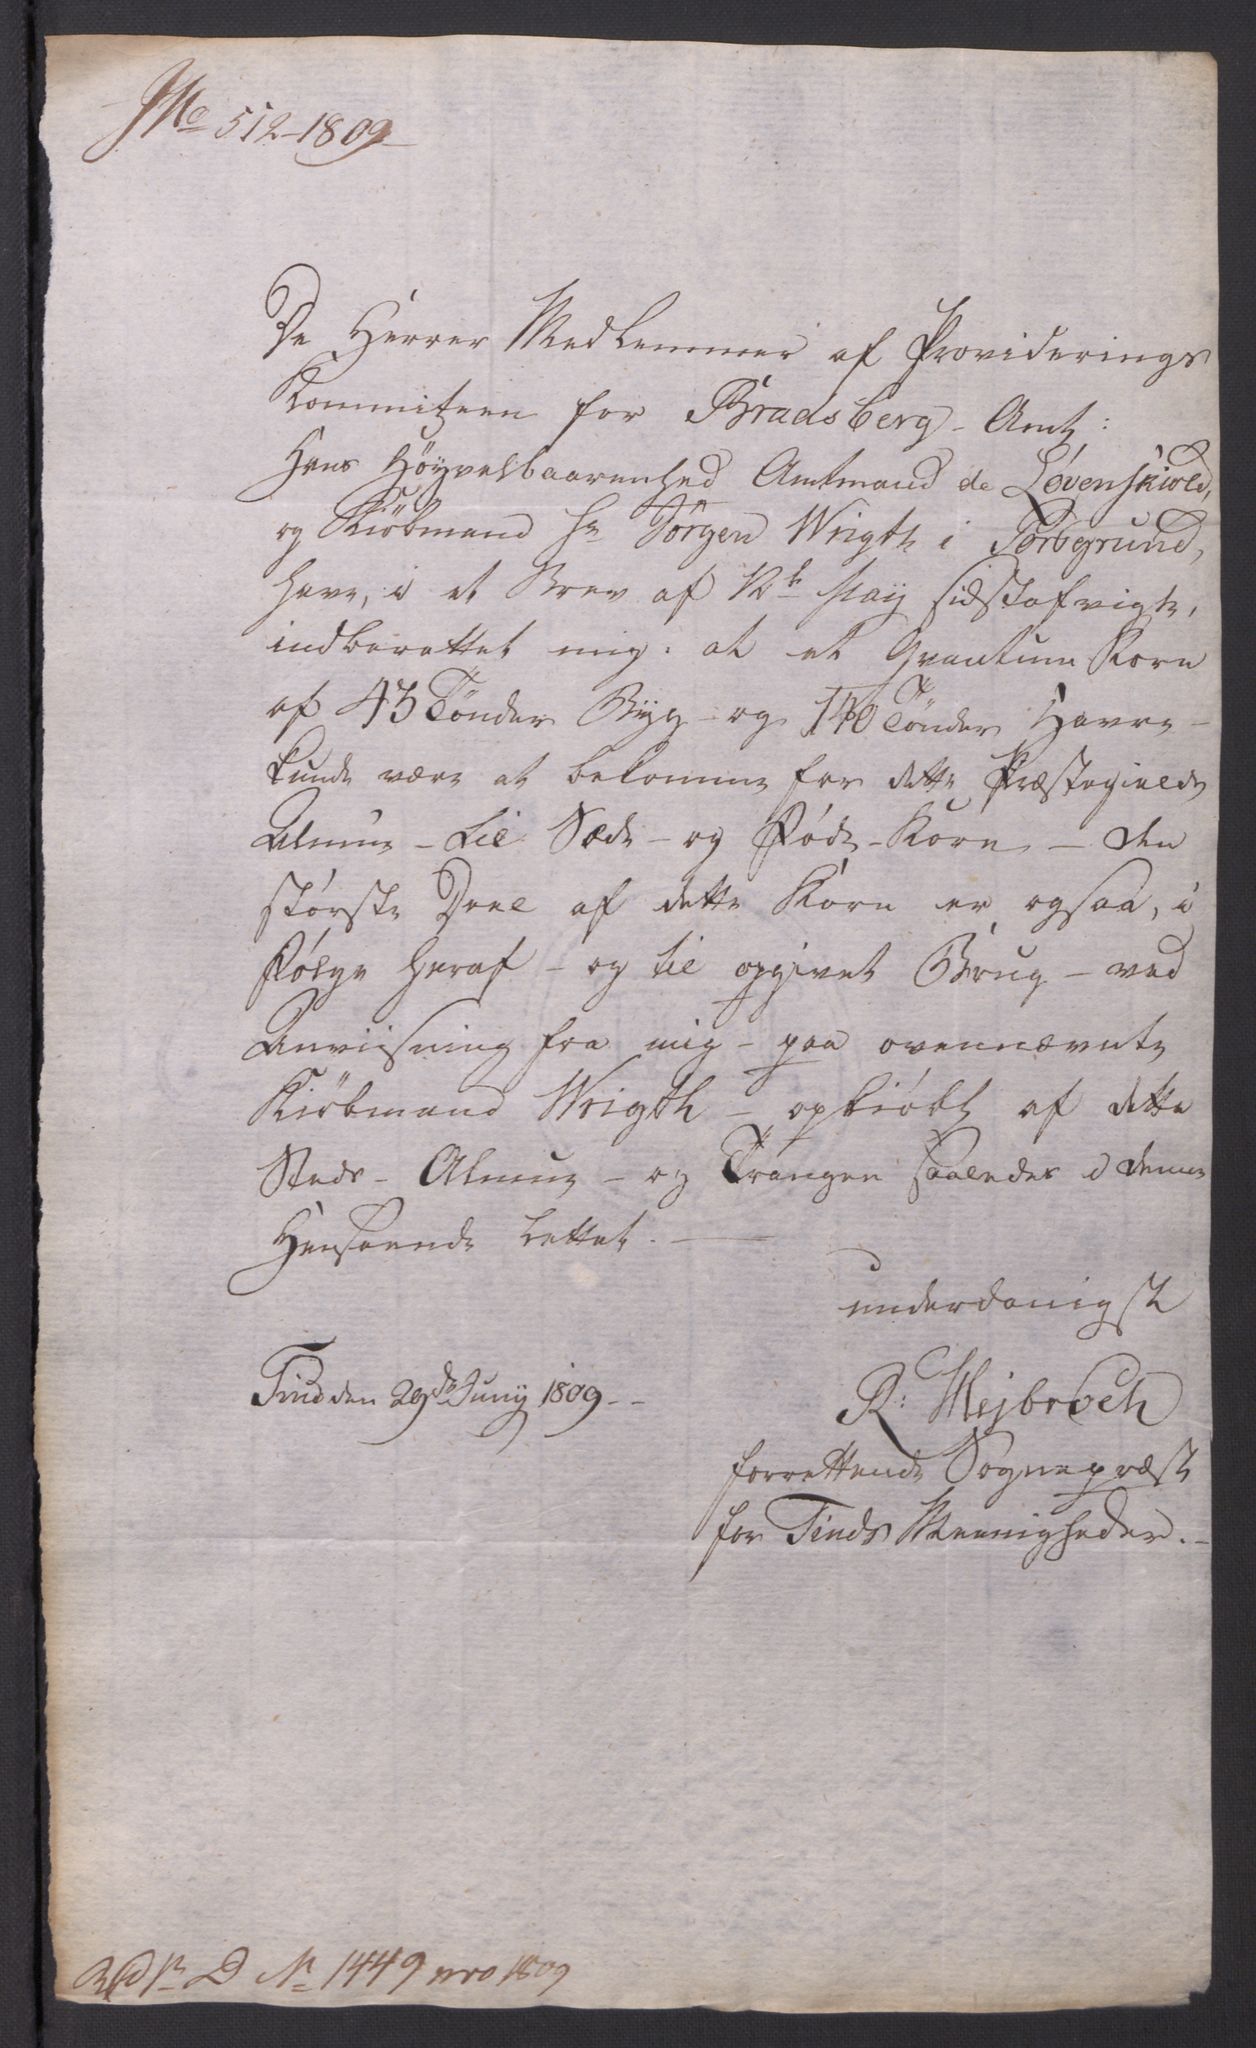 No 512-1809
De Herrer Medlemmer af Providerings
Kommitzeen for Bradsberg-Amt:
Hans Höyvelbaarenhed Amtmand de Løvenskiold,
og Kiöbmand Hr Jörgen Wrigth i Porsgrund,
have, i et Brev af 12te May sidstafvigte,
indberettet mig: at et Qvantum Korn
af 43 Tönder Byg - og 140 Tönder Havre -
kunde være at bekomme for dette Præstegields
Almue - til Sæde - og Föde-Korn - den
störste Deel af dette Korn er ogsaa, i
Fölge heraf - og til opgivet Brug - ved
Anviisning fra mig - paa ovennævnte
Kiöbmand Wrigth - opkiöbt af dette
Steds - Almue - og Trangen saaledes i denne
Henseende lettet. -
underdanigst
Tind den 29de Juny 1809. -
R: Mejbroch
forrettende Sognepræst
for Tinds Meenigheder. -
D No 1449 pro 1809